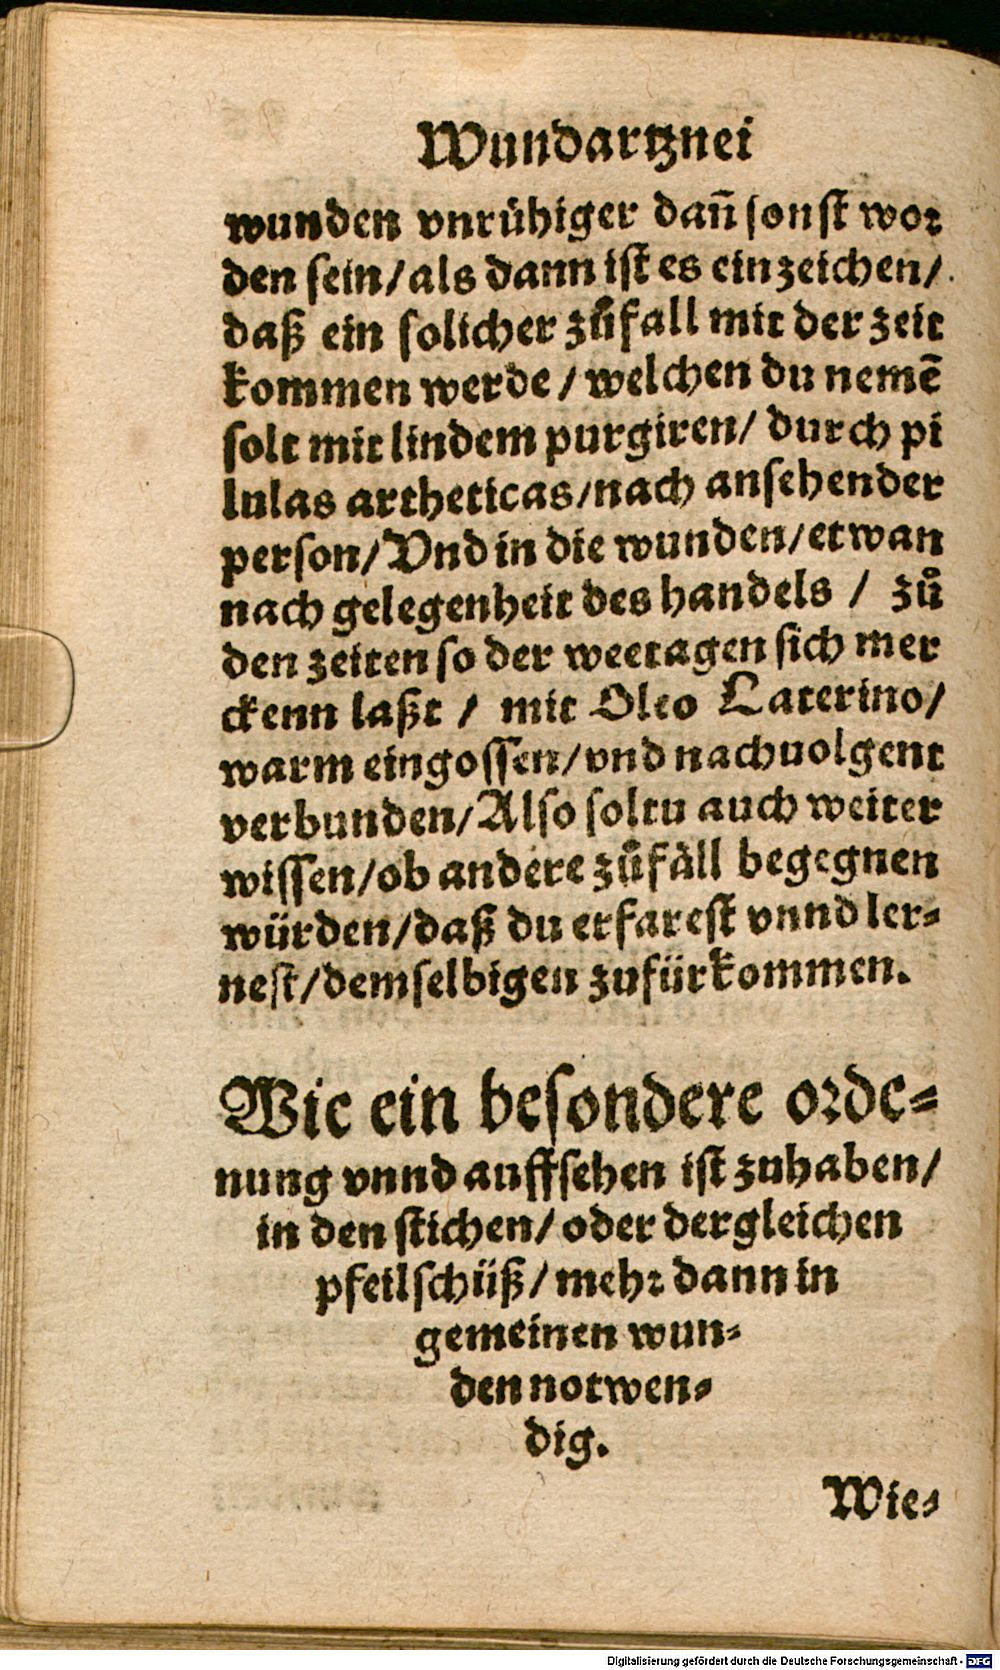 Wundartznei
wunden vnrühiger dañ sonst wor
den sein/als dann ist es ein zeichen/
daß ein solicher zůfall mit der zeit
kommen werde/welchen du nemẽ
solt mit lindem purgiren/ durch pi
lulas artheticas/nach ansehender
person/Vnd in die wunden/etwan
nach gelegenheit des handels / zů
den zeiten so der weetagen sich mer
ckenn laßt / mit Oleo Laterino/
warm eingossen/vnd nachuolgent
verbunden/Also soltu auch weiter
wissen/ob andere zůfäll begegnen
würden/daß du erfarest vnnd ler-
nest/demselbigen zufürkommen.
Wie ein besondere orde-
nung vnnd auffsehen ist zuhaben/
in den stichen/oder dergleichen
pfeilschüß/mehr dann in
gemeinen wun-
den notwen-
dig.
Wie-
Digitalisierung gefördert durch die Deutsche Forschungsgemeinschaft - DFG